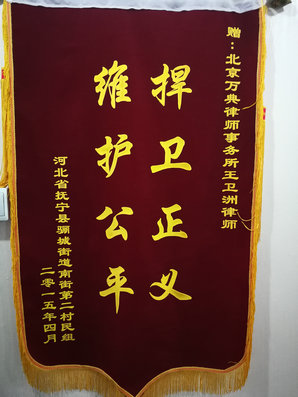 赠：北京万典律师事务所王卫洲律师
捍卫正义
维护公平
河北省抚宁县骊城街道南街第二村民组
二零一五年四月